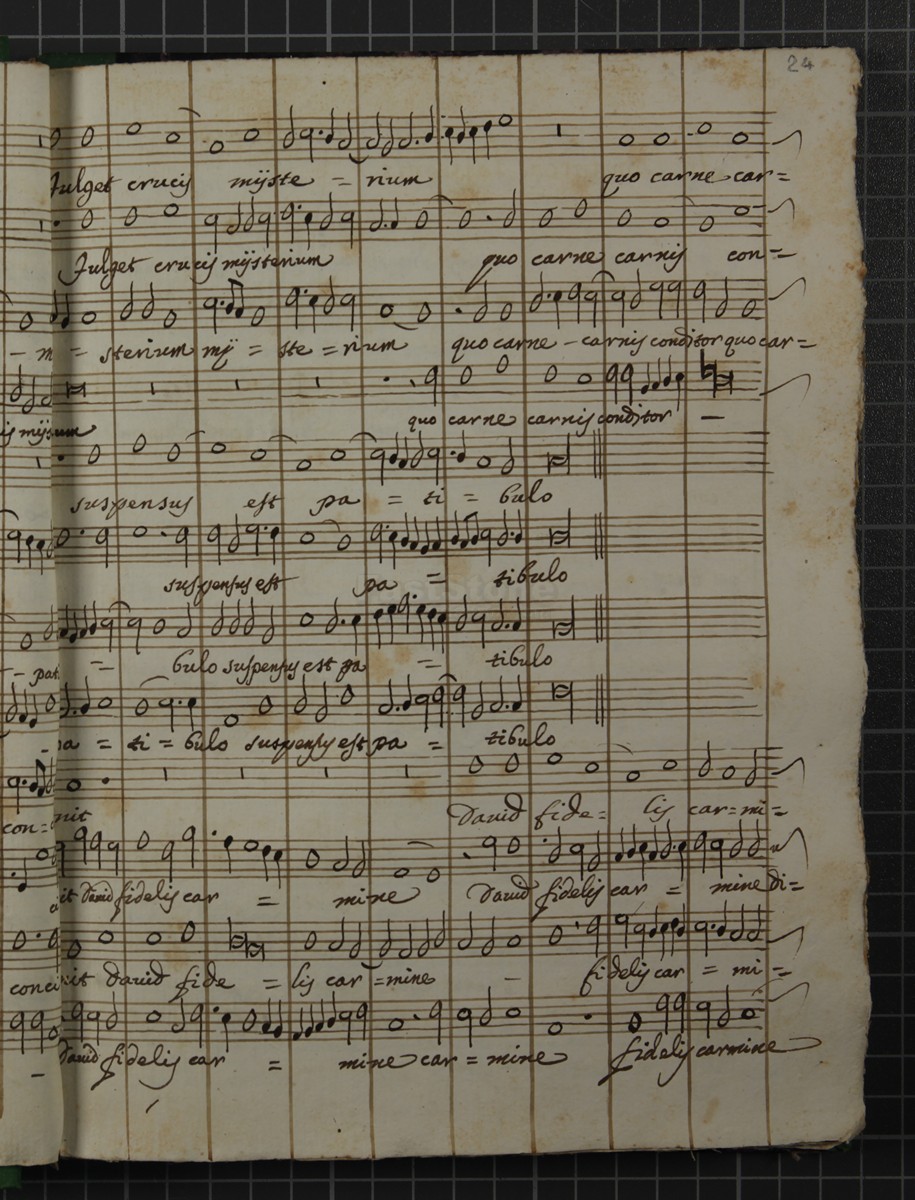 24
fulget crucis mijste = rium quo carne car=
fulget crucis mijsterium quo carne carnis con =
- m = sterium mij = ste = rium quo carne - carnis conditor quo car=
is mijs um quo carne carnis conditor -
suspensus est pa = ti = bulo
suspensus est pa = tibulo
- pat = bulo suspensus est pa = tibulo
- pa = ti = bulo suspensus est pa = tibulo
con= nit David fide= lis car=mi=
it David fidelis car = mine David fidelis car = mine di=
conci nit David fide = lis car=mine - fidelis car = mi =
- David fidelis car = mine car = mine fidelis carmine